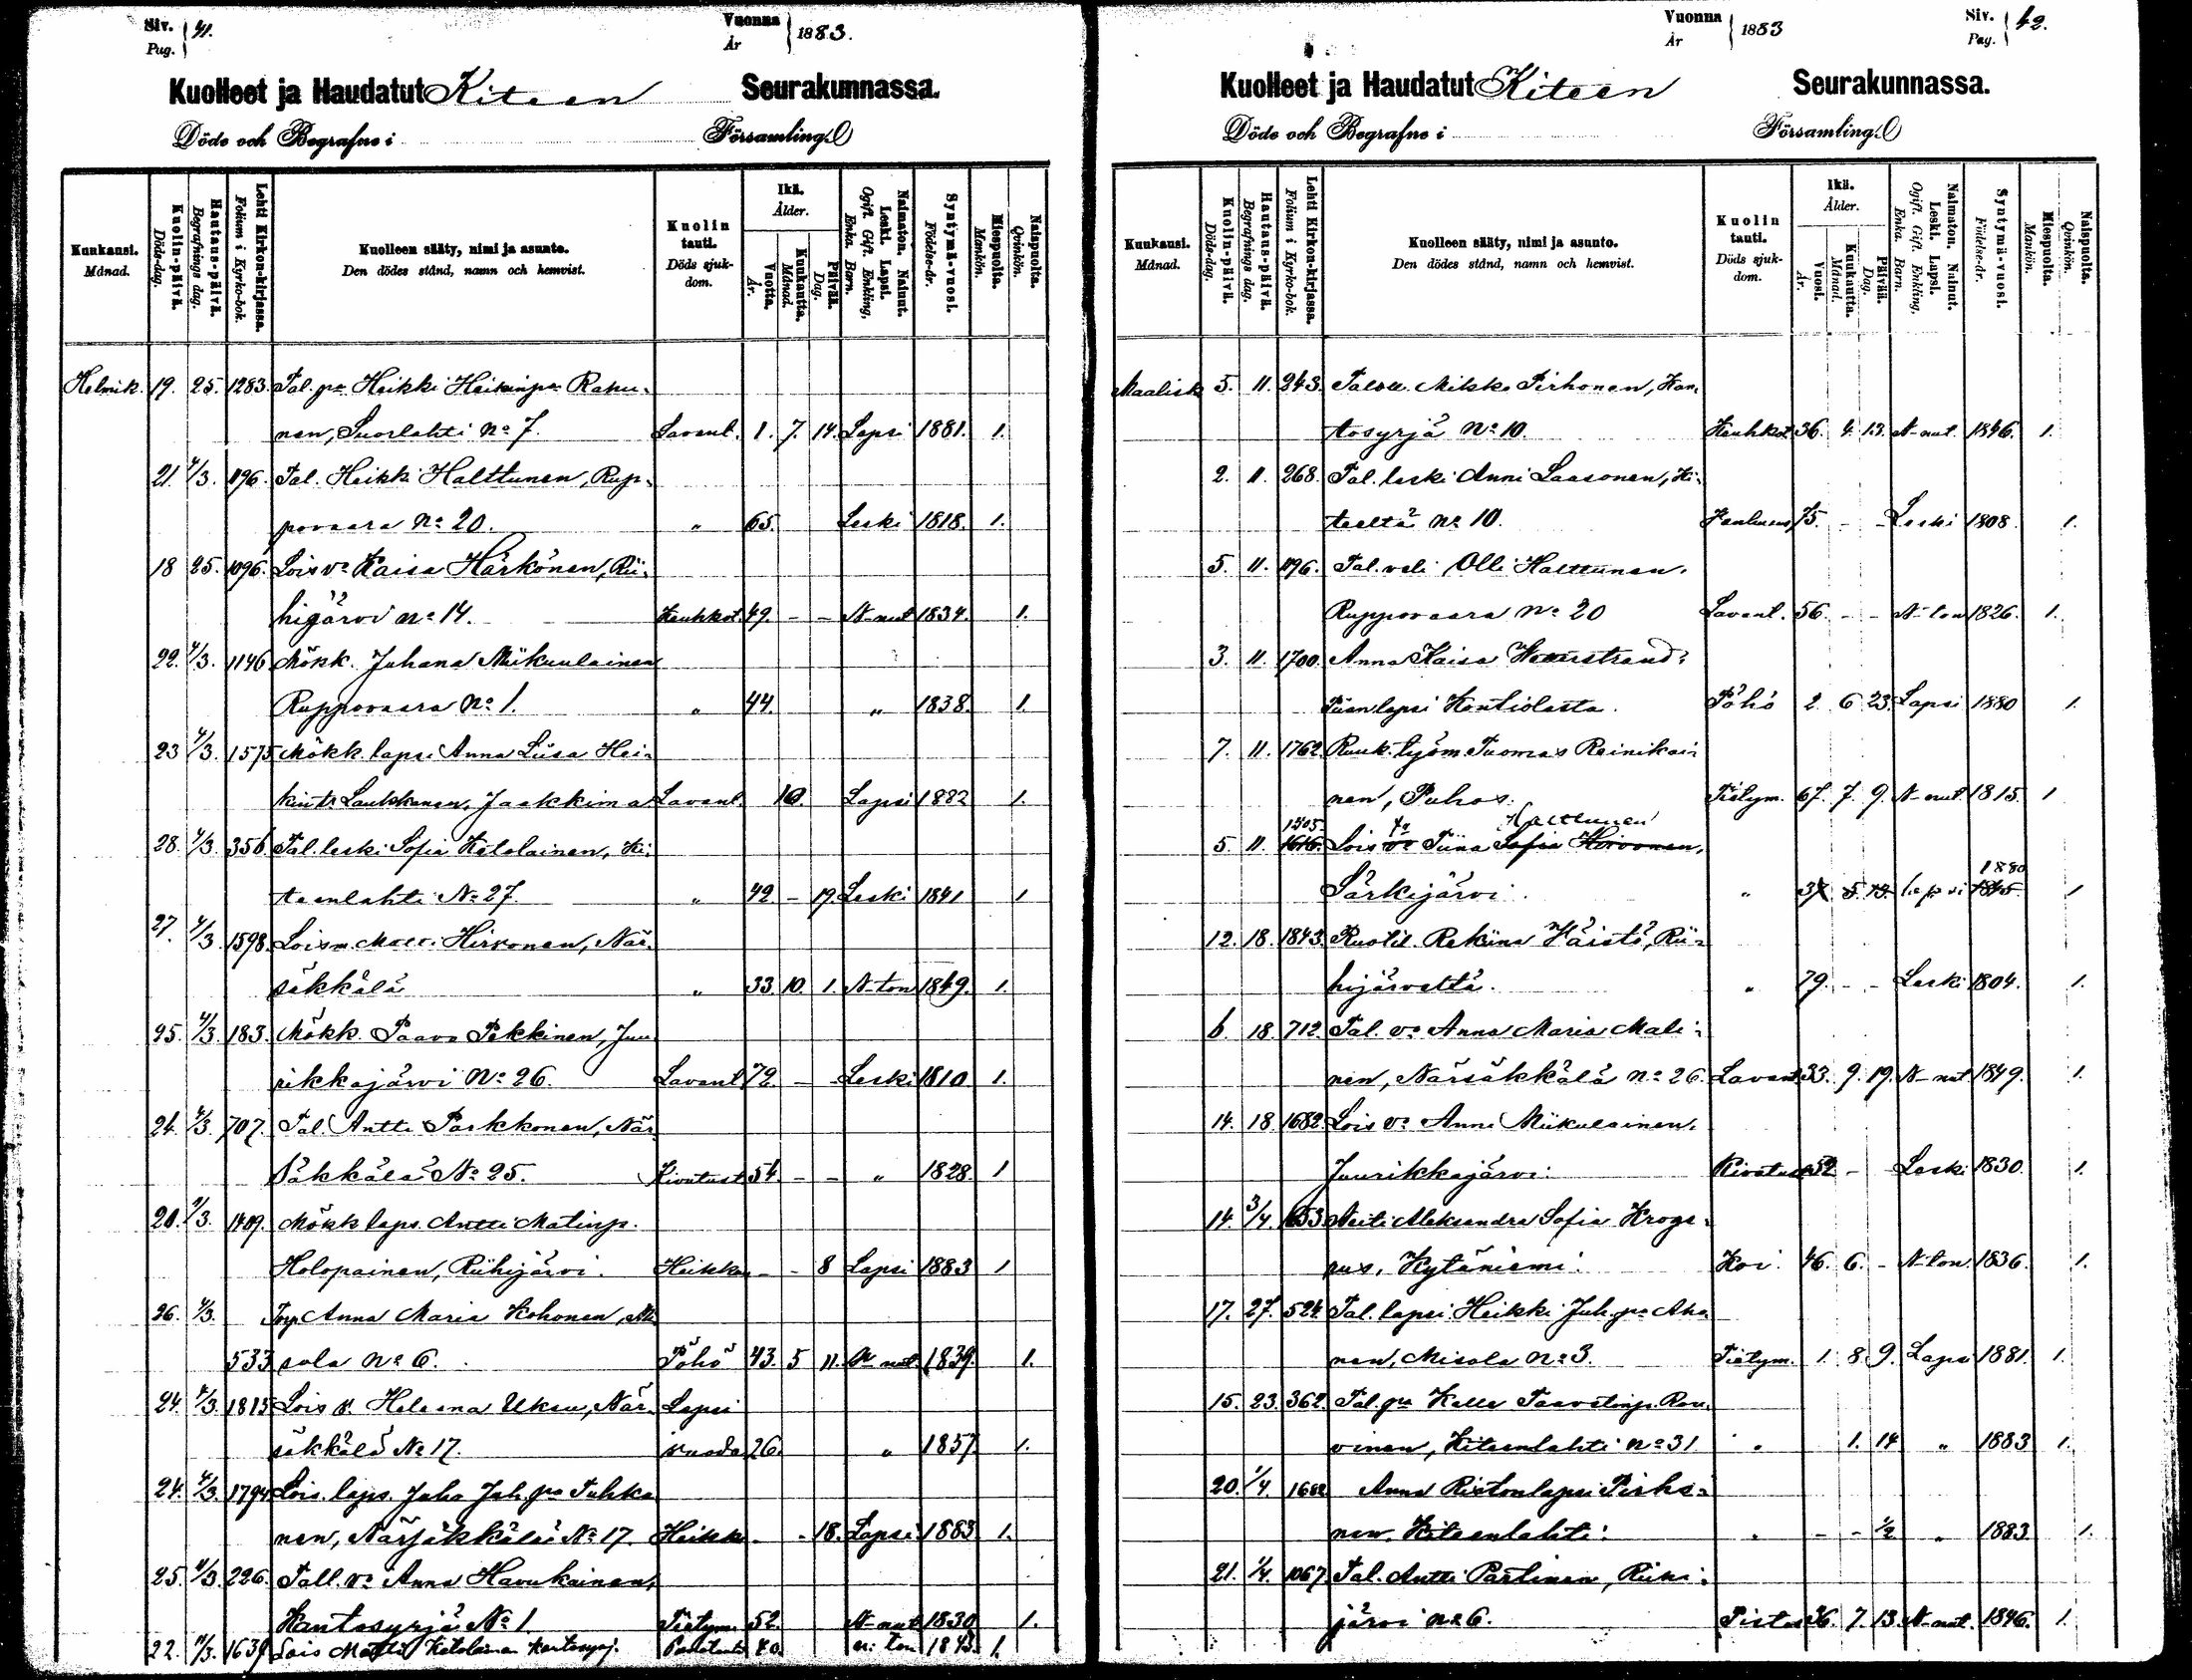 Siv. Pag. 41.
Vuonna År 1883.
Kuolleet ja Haudatut Kiteen Seurakunnassa.
Döde och Begrafne i Församling.
Kuukausi. Månad.
Kuolin-päivä. Döds-dag.
Hautaus-päivä. Begrafnings dag.
Lehti Kirkon-kirjassa. Folium i Kyrko-bok.
Kuolleen sääty, nimi ja asunto. Den dödes stånd, namn och hemvist.
Kuolin tauti. Döds sjuk-dom.
Ikä. Ålder.
Vuotta. År.
Kuukautta. Månad.
Päivää. Dag.
Naimaton. Nainut. Leski. Lapsi. Ogift. Gift. Enkling, Enka. Barn.
Syntymä-vuosi. Födelse-år.
Miespuolta. Mankön.
Naispuolta. Qvinkön.
Helmik. 19. 25. 1283. Tal. pa Heikki Heikinpa Ranu-
nen, Suorlahti No 7. Lavant. 1. 7. 14. Lapsi 1881. 1.
21. 4/3. 1196. Tal. Heikki Halttunen, Rup-
povaara No 20. " 65. Leski 1818. 1.
18 25. 1096. Lois vo Kaisa Härkönen, Rii-
higärvi No 14. Keuhkot. 49. - - N-nut 1834. 1.
22. 4/3. 1146 Mökk. Juhana Miikuulainen
Ruppovaara No 1. " 44. " 1838. 1.
23 4/3. 1575 Mökk. lapsi Anna Liisa Hei-
kint. Laukkanen, Jaakkima Lavant. 10. Lapsi 1882 1.
28. 4/3. 356 Tal. leski Sofia Ketolainen, Ki-
teenlahti No 27. " 42 - 19. Leski 1841 1
27. 4/3. 1598. Lois m. Matti Hirvonen, När-
säkkälä " 33. 10. 1. N-ton 1849. 1.
25. 4/3. 183. Mökk. Paavo Pekkinen, Juu
rikkajärvi No 26. Lavant 72. - Leski 1810 1.
24. 4/3. 707. Tal. Antti Parkkonen, När
säkkälä No 25. Kivutust 54. - - " 1828. 1
20. 4/3. 1409. Mökk laps. Antti Matinp.
Holopainen, Riihijärvi. Heikko - - 8 Lapsi 1883 1
26. 4/3. Torp Anna Maria Kohonen, Mi
533 sola No 6. Pöhö 43. 5 11. N-nut. 1839. 1.
24. 4/3. 1815 Lois v. Helena Uksu, När- Lapsi
säkkälä No 17. vuode 26. " 1857. 1.
24. 4/3. 1794 Lois. laps. Juho Juh. pa Tuhka
nen, Närsäkkälä No 17. Heikko - - 18. Lapsi 1883. 1.
25. 4/3. 226. Tall. vo Anna Havukainen,
Kantosyrjä No 1. Tietym. 52. N-nut 1830 1.
22. 4/3. 1639 Lois Matti Ketolainen Kantosyrj. 40. n: ton 1843. 1.
Vuonna År 1883
Siv. Pag. 42.
Kuolleet ja Haudatut Kiteen Seurakunnassa.
Döde och Begrafne i Församling.
Kuukausi. Månad.
Kuolin-päivä. Döds-dag.
Hautaus-päivä. Begrafnings dag.
Lehti Kirkon-kirjassa. Folium i Kyrko-bok.
Kuolleen sääty, nimi ja asunto. Den dödes stånd, namn och hemvist.
Kuolin tauti. Döds sjuk-dom.
Ikä. Ålder.
Vuosi. År.
Kuukautta. Månad.
Päivää. Dag.
Naimaton. Nainut. Leski. Lapsi. Ogift. Gift. Enkling, Enka. Barn.
Syntymä-vuosi. Födelse-år.
Miespuolta. Mankön.
Naispuolta. Qvinkön.
Maalisk 5. 11. 243. Talol. Mikko Pirhonen, Kan-
tosyrjä No 10. Keuhkot 36. 4. 13. N-nut. 1846. 1.
2. 11. 268. Tal. leski Anni Laasonen, Ki-
teeltä No 10. 75. - - Leski 1808. 1.
5. 11. 1196. Tal. veli Olli Halttunen.
Ruppovaara No 20 Lavant. 56. - - N-ton 1826. 1.
3. 11. 1700. Anna Kaisa
Piian lapsi Kontiolasta. Pöhö 2. 6 23. Lapsi 1880 1.
7. 11. 1762. Ruuk. työm. Tuomas Reinikai-
nen, Puhos. Tietym. 67. 7. 9. N-nut. 1815. 1
1505. tr Halttunen
5. 11. 1616. Lois vo Tiina Sofia Hirvonen,
1880
Särkijärvi. " 37 5. 13. lapsi 1845 1
12. 18. 1843. Ruotil. Rekiina Häistö, Rii-
hijärveltä. " 79. - - Leski 1804. 1.
6. 18. 712. Tal. vo Anna Maria Mali-
nen, Närsäkkälä No 26. Lavant 33. 9. 19. N-nut 1849. 1.
14. 18. 1682. Lois vo Anni Miikulainen.
Juurikkajärvi. Kivutust 52. - Leski 1830. 1.
14. 3/4. 1653 Neiti Aleksandra Sofia Kroge-
rus, Kytäniemi. Koi. 46. 6. - N-ton. 1836. 1.
17. 27. 524. Tal. lapsi Heikki Juh. pa Aha
nen, Misola No 3. Tietym. 1. 8. 9. Lapsi 1881. 1.
15. 23. 362. Tal. pa Kalle Taavetinp. Rou-
vinen, Kiteenlahti No 31. " 1. 14 " 1883 1.
20. 1/4. 1682 Anna Riston lapsi Pirho-
nen. Kiteenlahti. " - - 1/2 " 1883. 1.
21. 1/4. 1067 Tal. Antti Partinen, Riihi-
järvi No 6. Pistos 36. 7. 13. N-nut. 1846. 1.